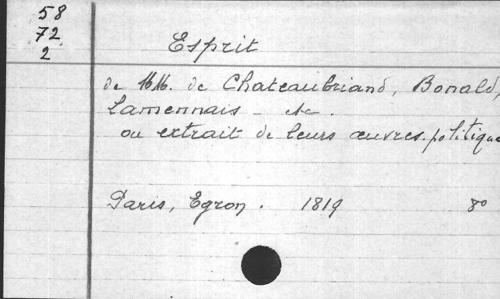 58
72
2
Esprit
de MM. de Chateaubriand, Bonald,
Lamennais - etc.
ou extrait de leurs œuvres politique
Paris, Egron. 1819 8º